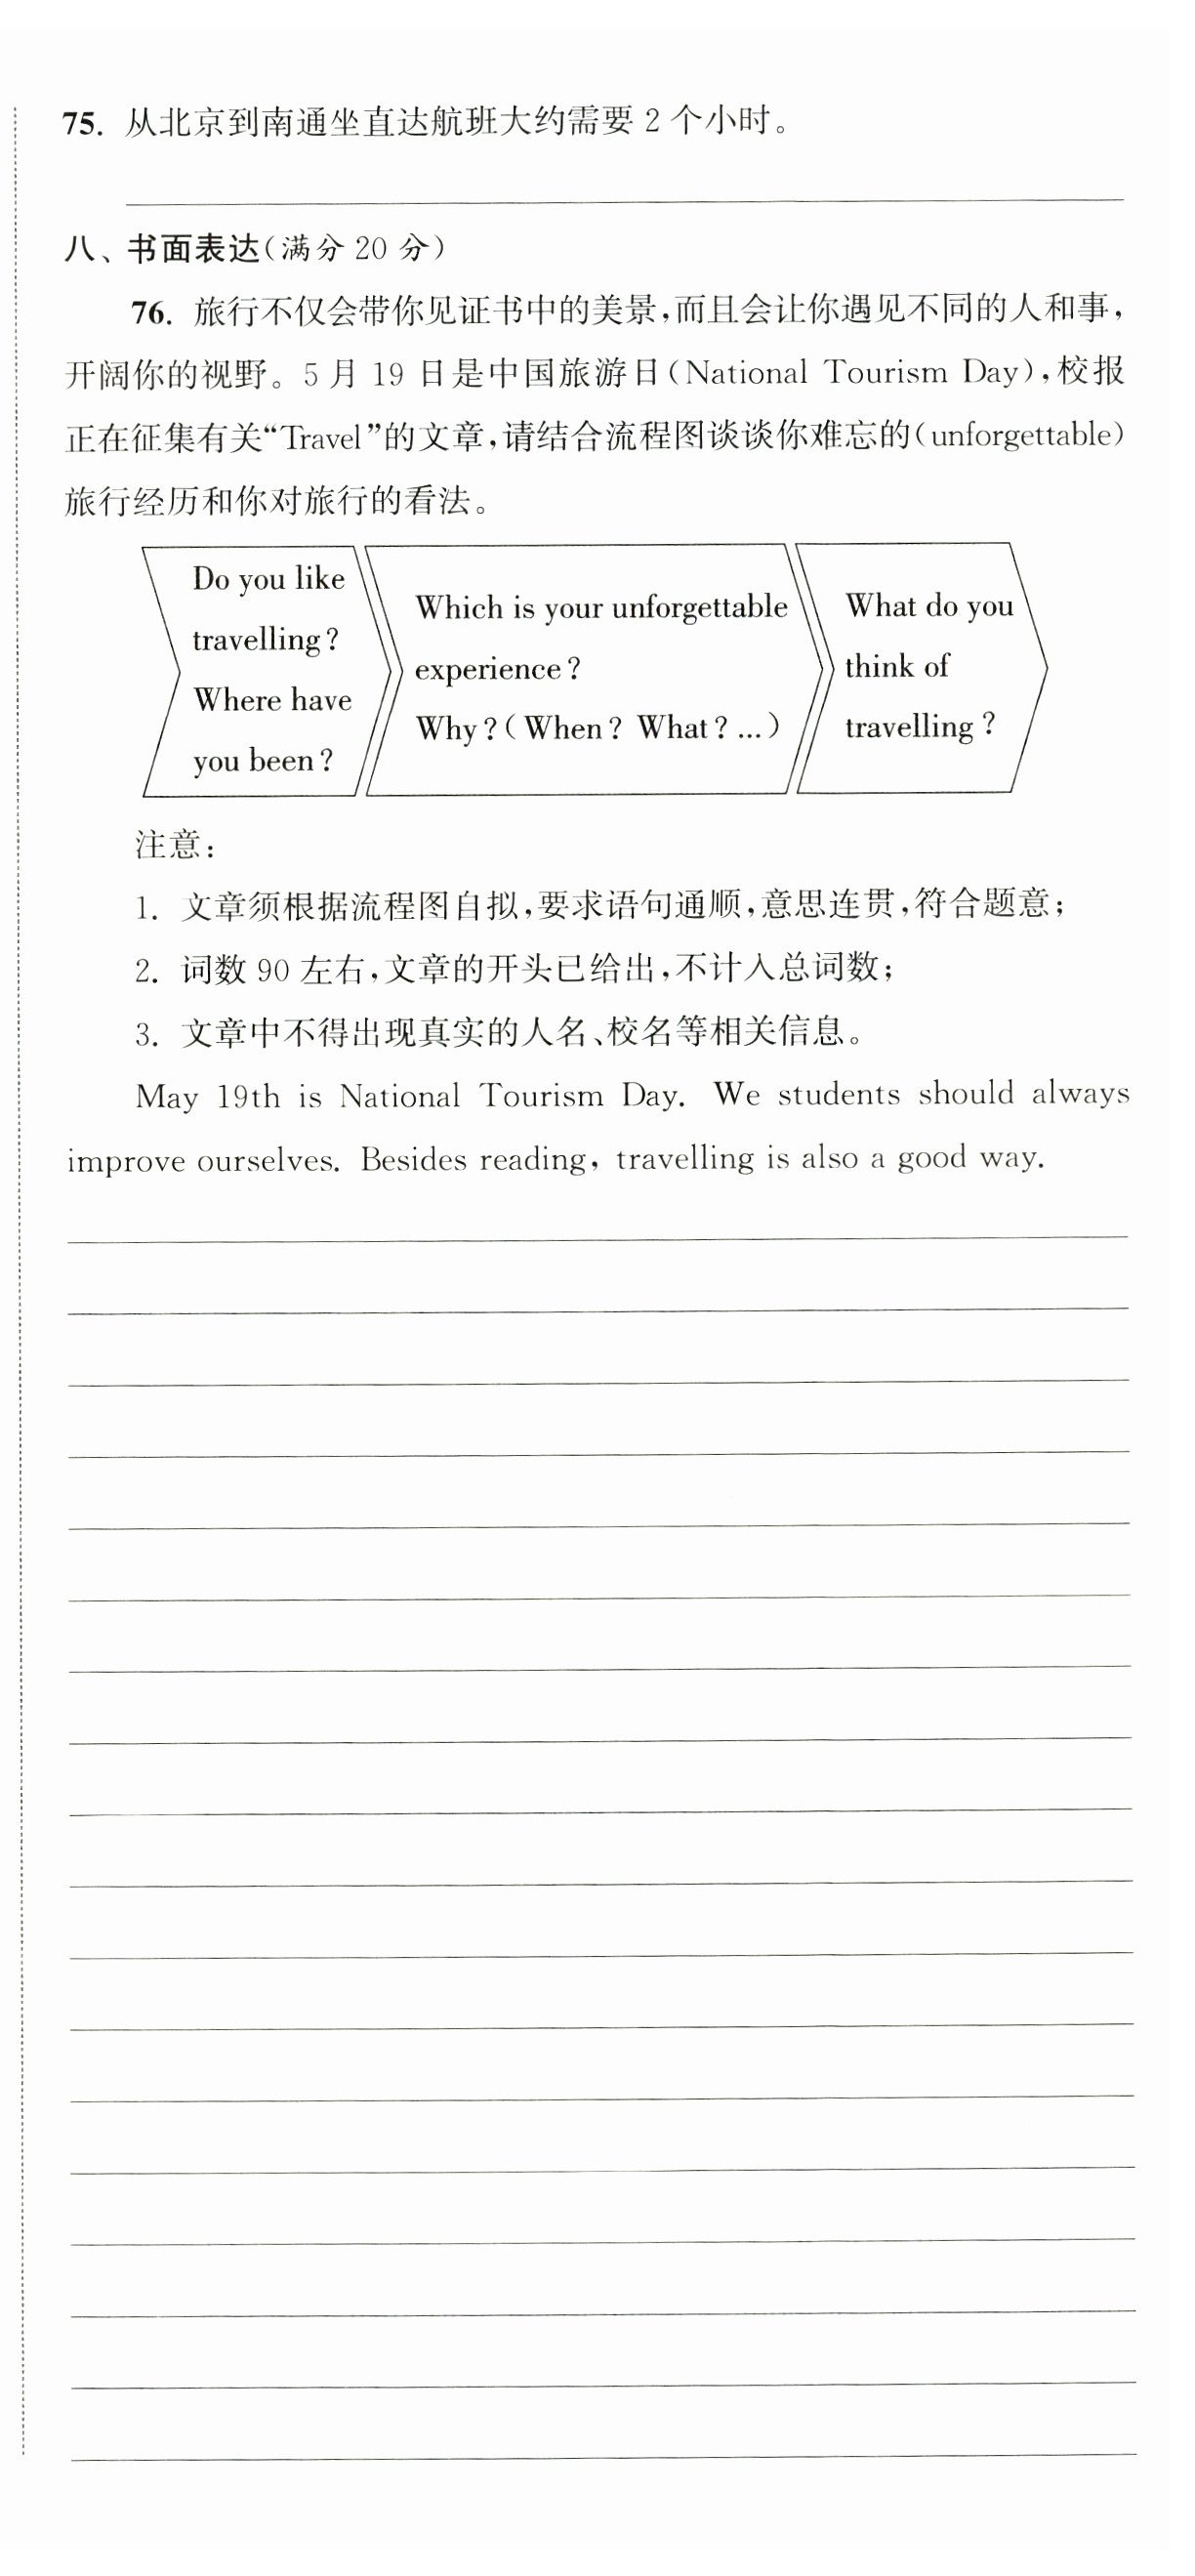 75. 从北京到南通坐直达航班大约需要 2 个小时。
八、书面表达(满分 20 分)
76. 旅行不仅会带你见证书中的美景,而且会让你遇见不同的人和事,
开阔你的视野。5 月 19 日是中国旅游日(National Tourism Day),校报
正在征集有关“Travel”的文章,请结合流程图谈谈你难忘的(unforgettable)
旅行经历和你对旅行的看法。
Do you like
travelling?
Where have
you been?
Which is your unforgettable
experience?
Why?(When? What?...)
What do you
think of
travelling?
注意:
1. 文章须根据流程图自拟,要求语句通顺,意思连贯,符合题意;
2. 词数 90 左右,文章的开头已给出,不计入总词数;
3. 文章中不得出现真实的人名、校名等相关信息。
May 19th is National Tourism Day. We students should always
improve ourselves. Besides reading, travelling is also a good way.